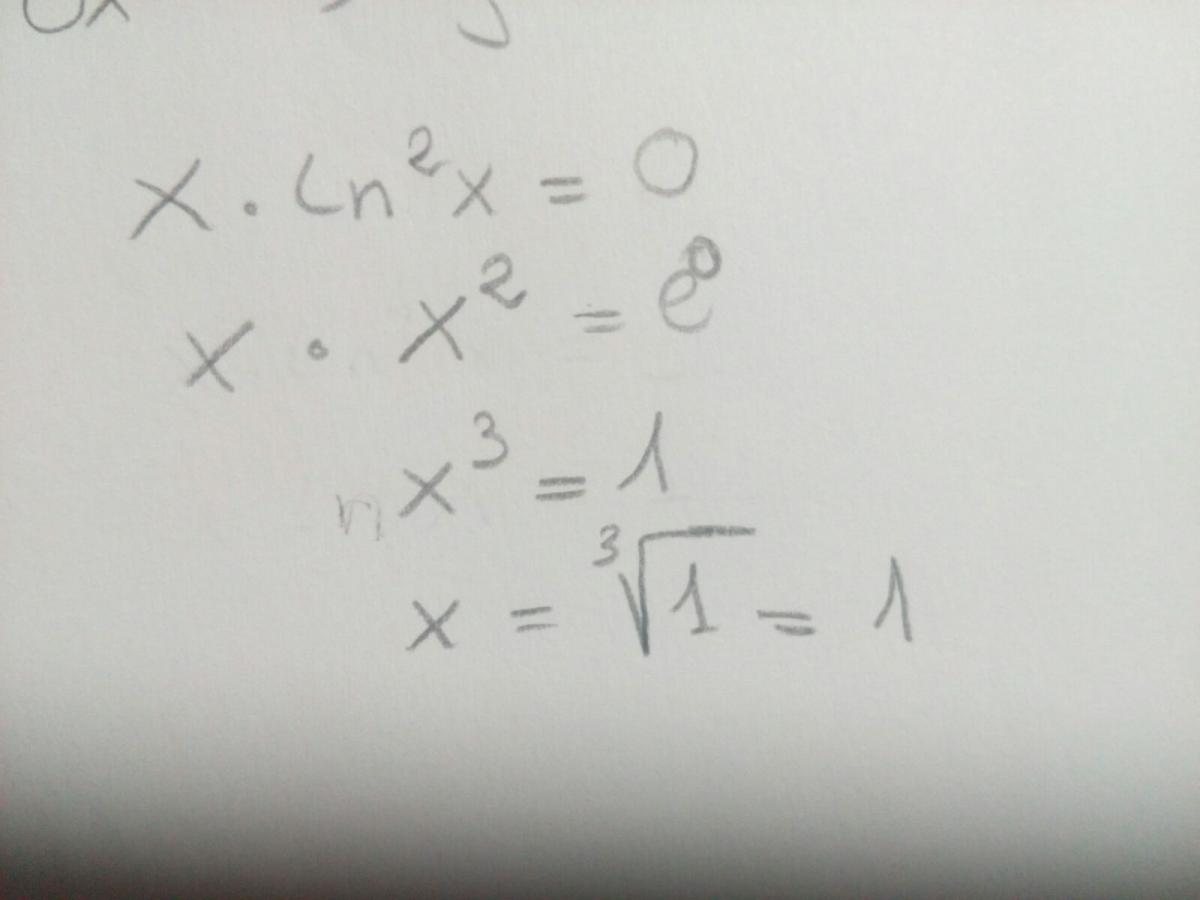 x · Ln²x = 0
x · x² = e⁰
x³ = 1
x = ³√1 = 1